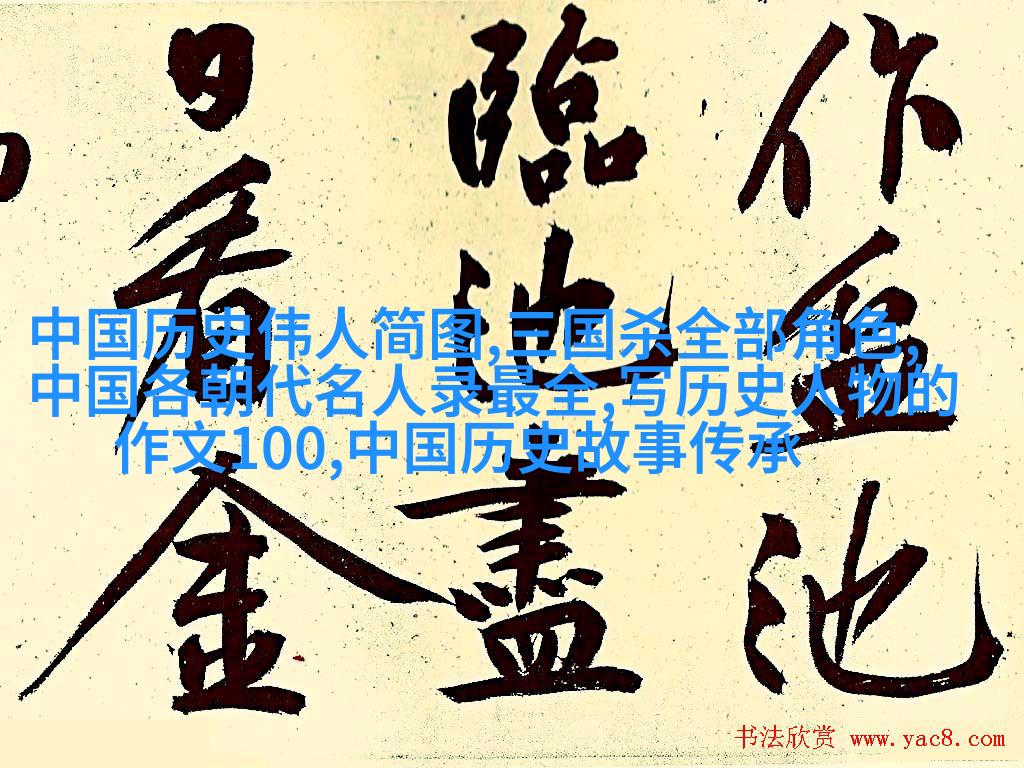 作盆池
臨池盡
日看金
中国历史伟人简图,三国杀全部角色,
中国各朝代名人录最全,写历史人物的
作文100,中国历史故事传承
书法欣赏 www.yac8.com